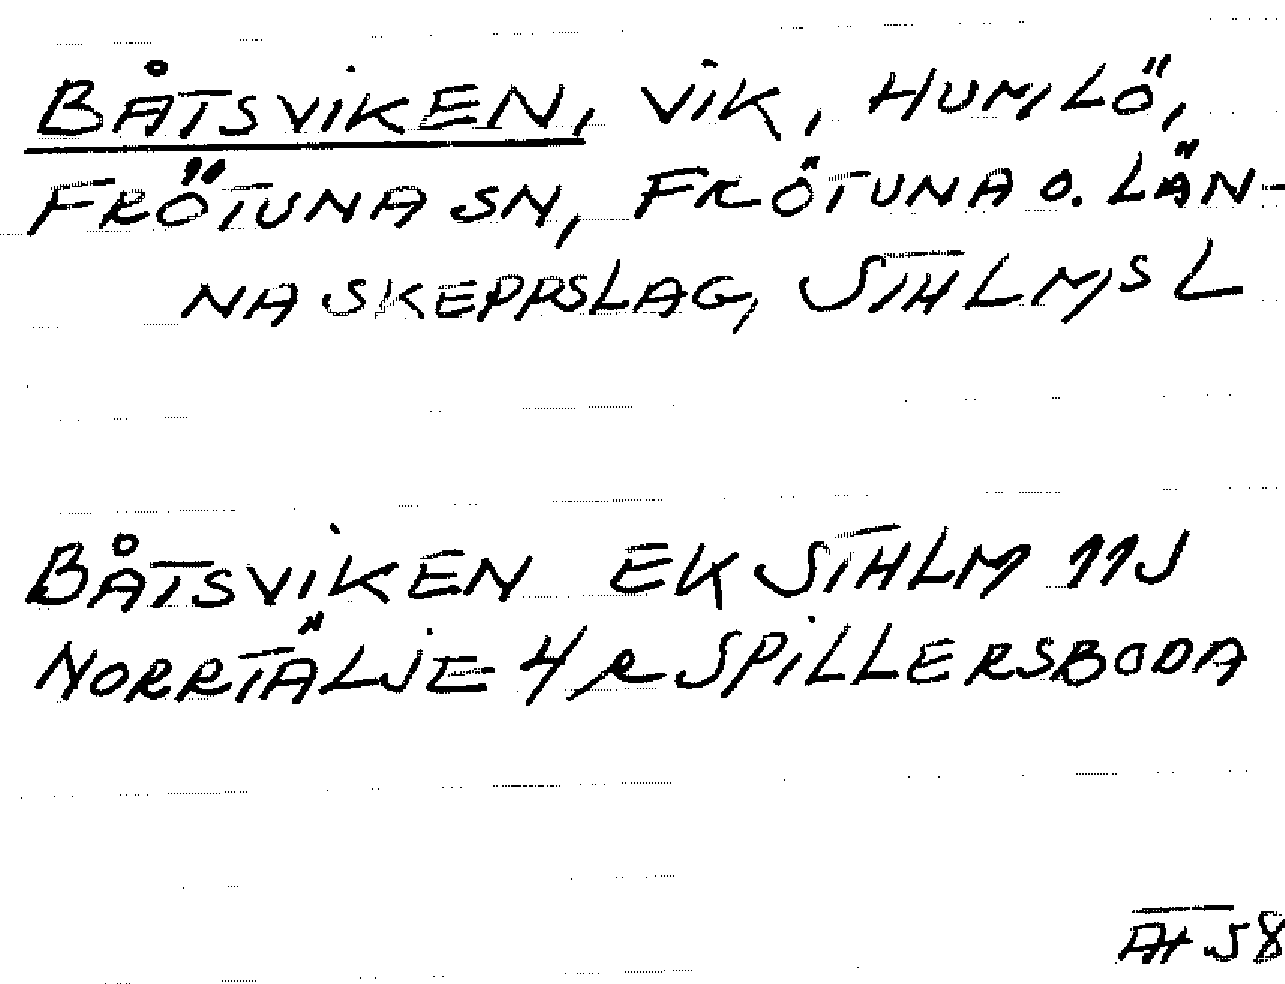 BÅTSVIKEN, VIK, HUMLÖ,
FRÖTUNA SN, FRÖTUNA O. LÄN-
NA SKEPPSLAG, STHLMS L
BÅTSVIKEN EK STHLM 11J
NORRTÄLJE 4 R SPILLERSBODA
58